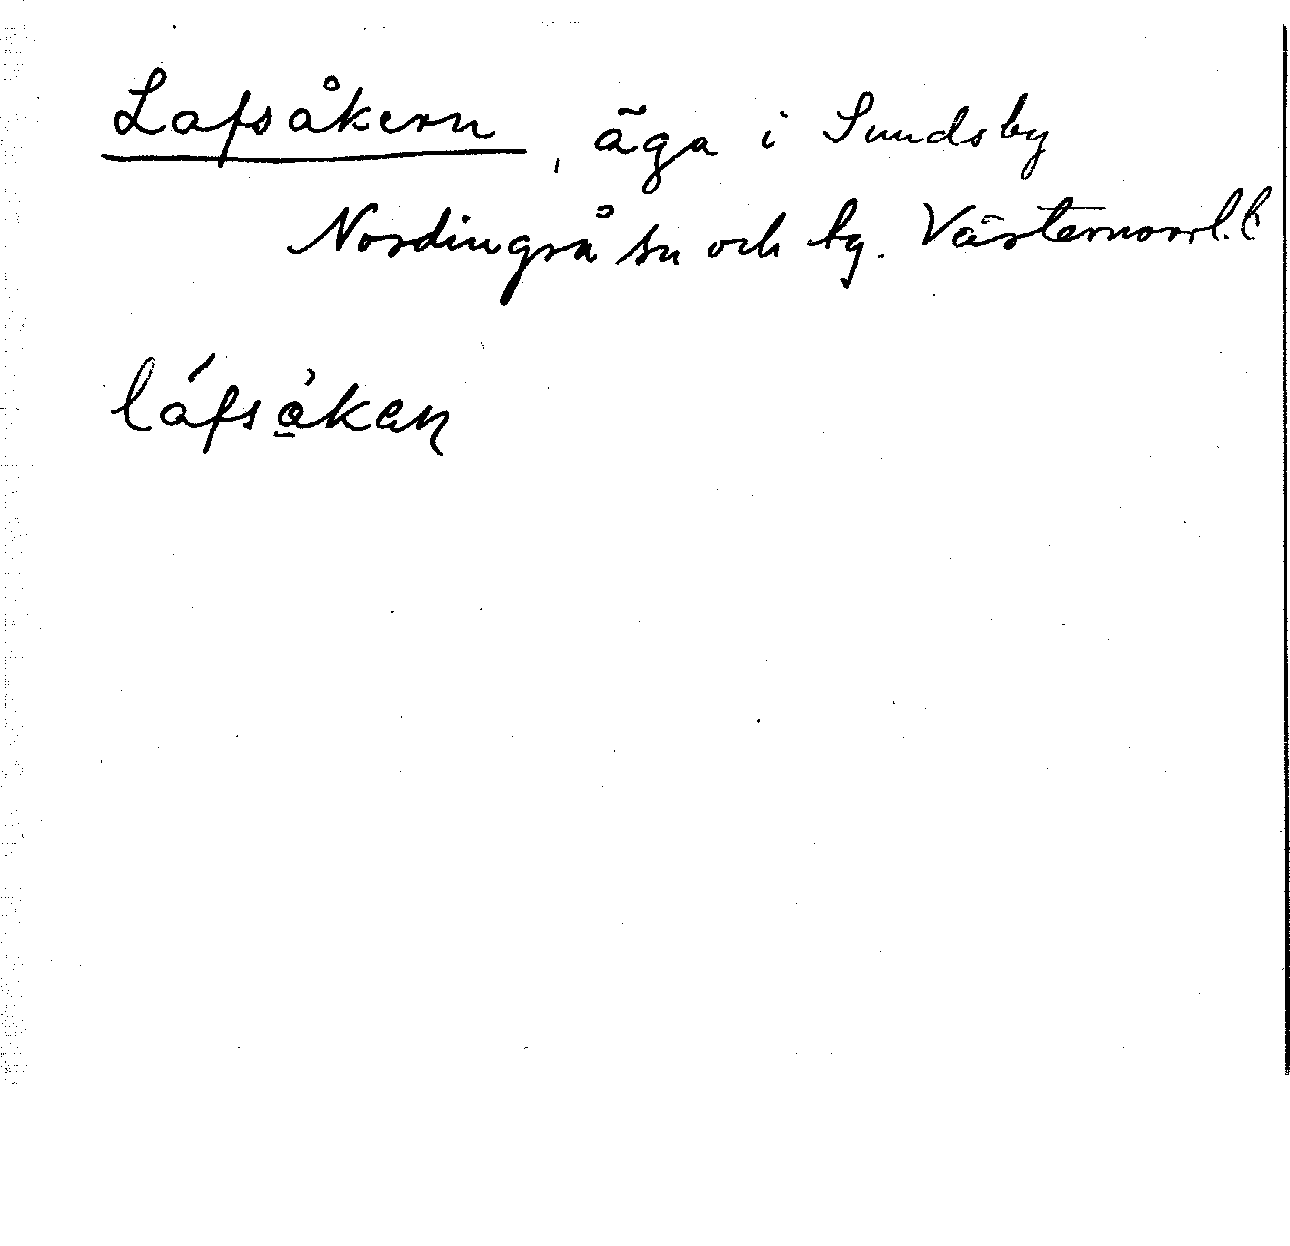 Lafsåkern, äga i Sundsby
Nordingrå sn och by. Västernorrl. l
láfsåkaɳ